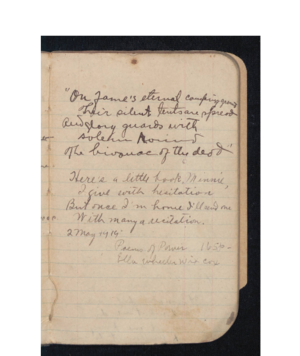 "On Fame's eternal camping ground
Their silent tents are spread
And glory guards with
solemn round
The bivouac of the dead
Here's a little book, Minnie,
I give with hesitation
But once I'm home I'll
With many a recitation.
2 May 1919
Poems of Power
Ella Wheeler Wilcox